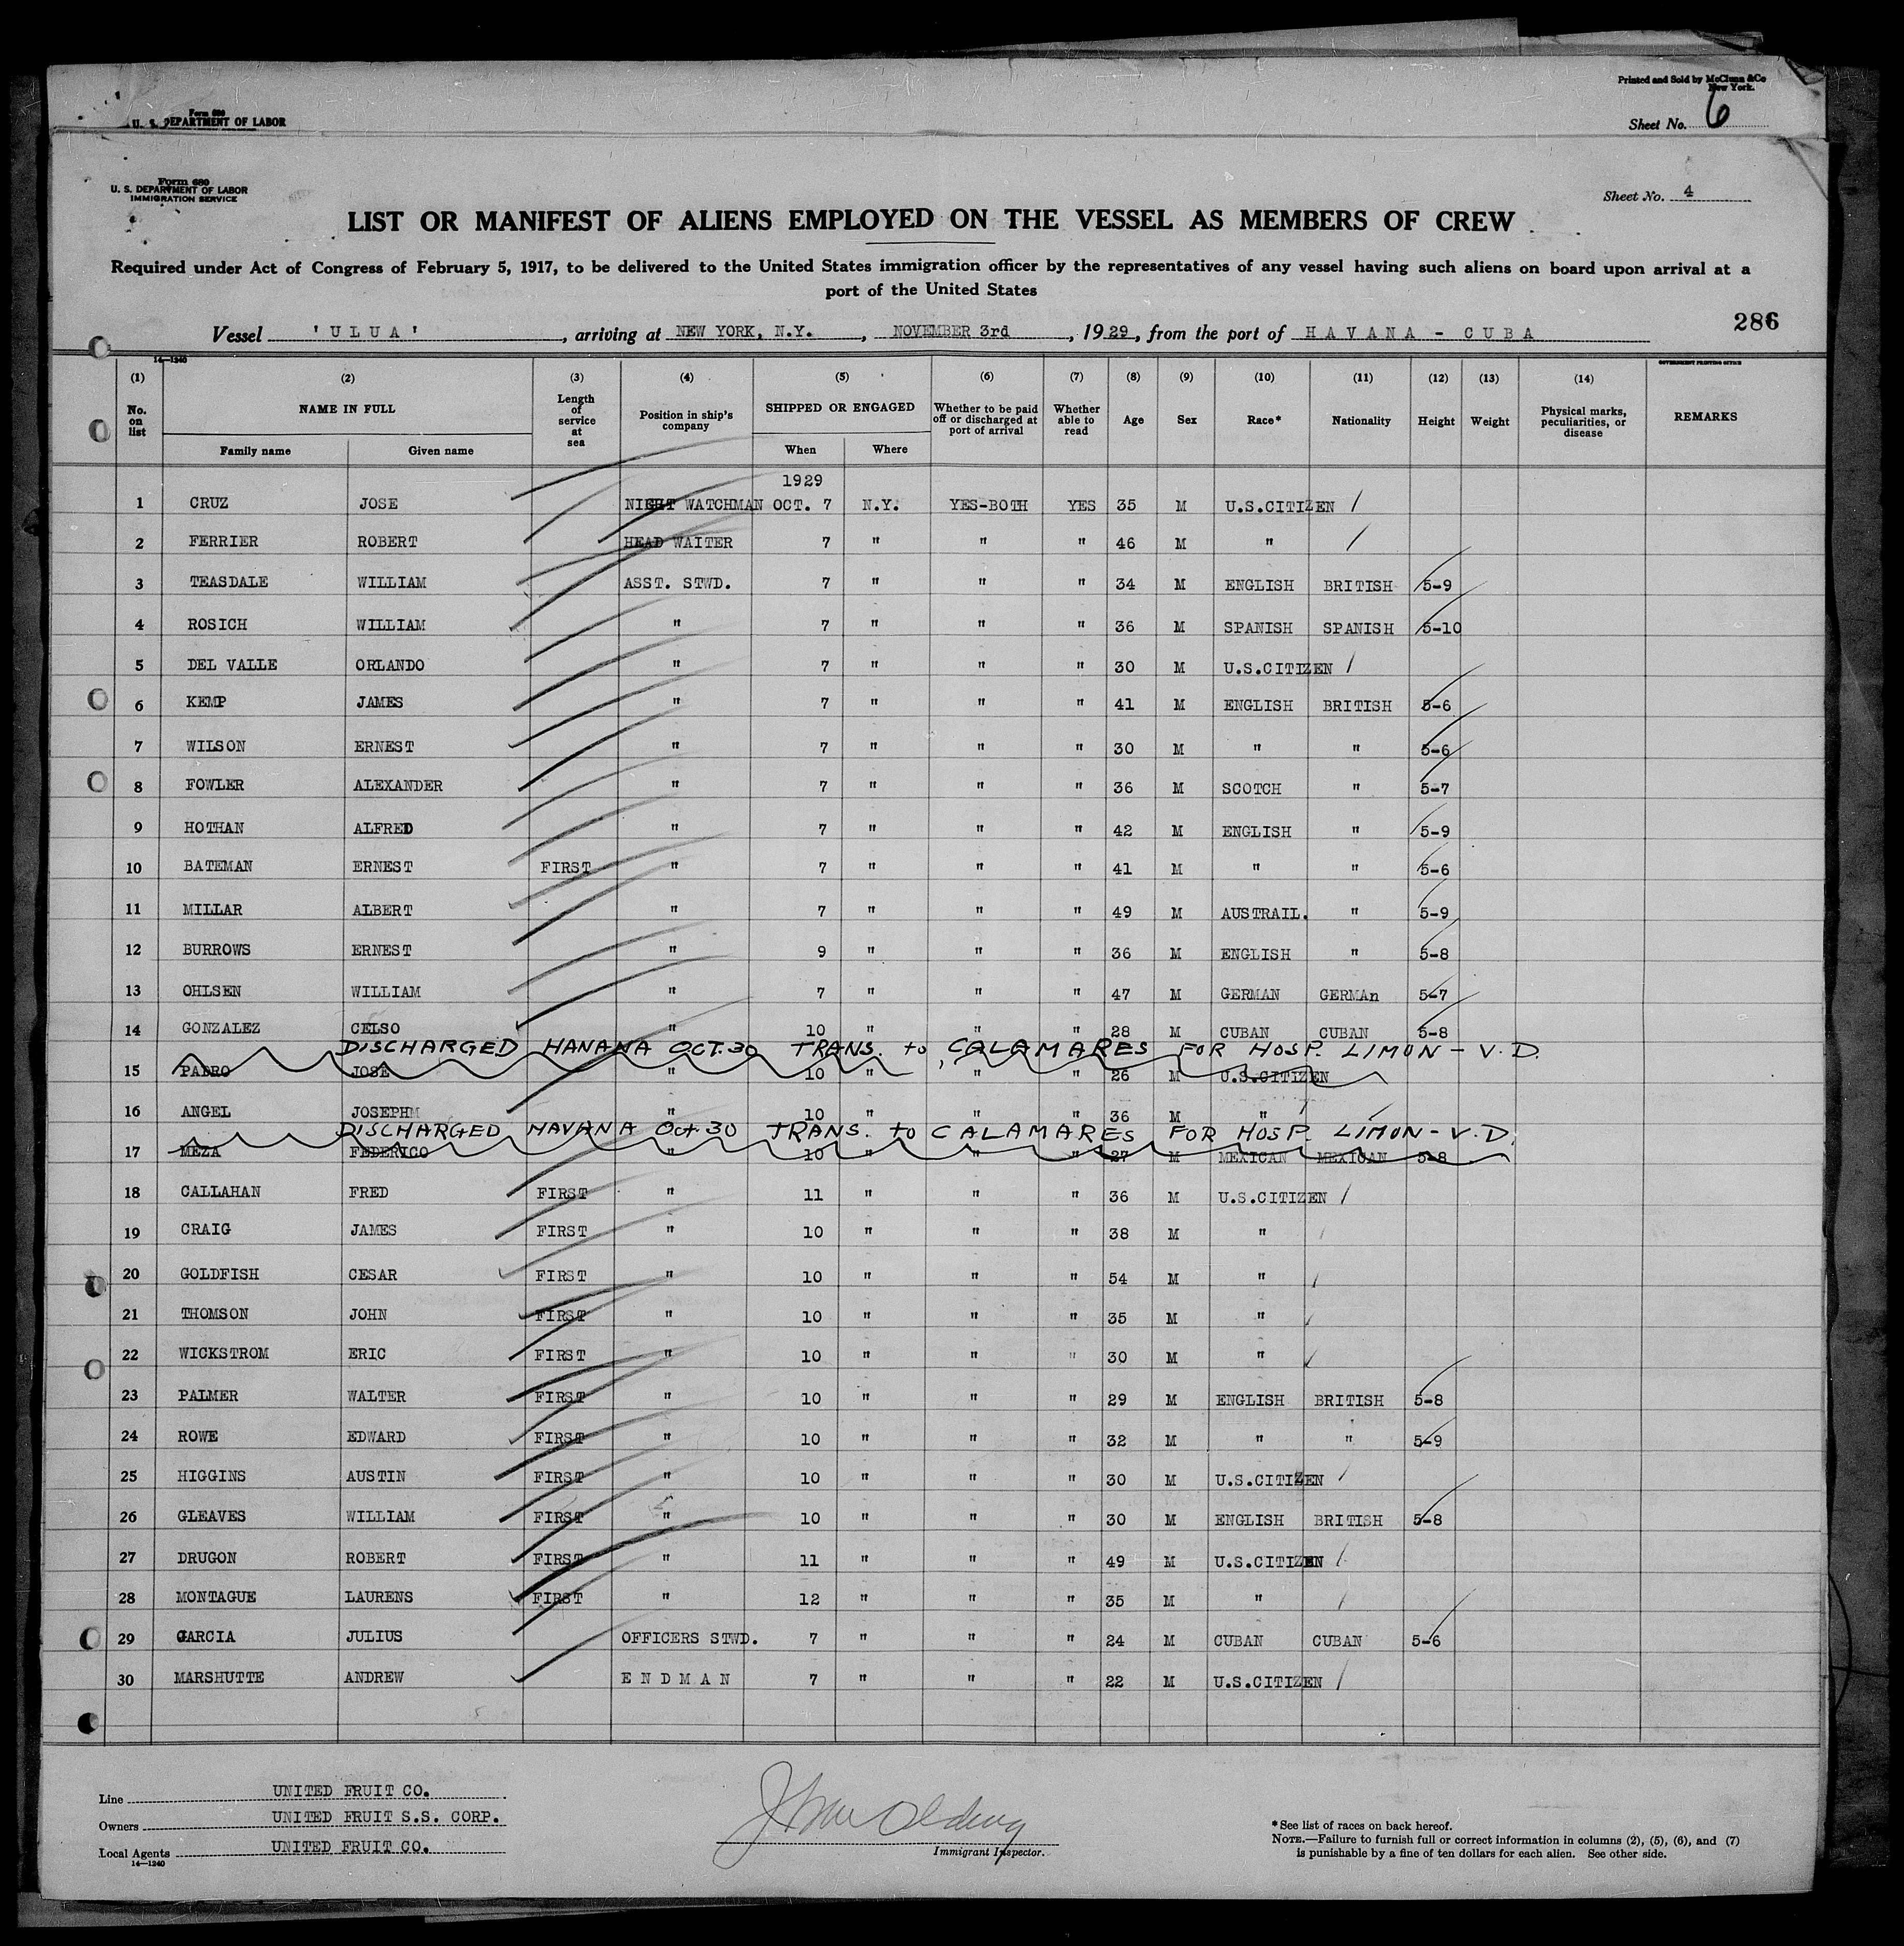 Printed and Sold by McClunn & Co
New York.
Form 680
U. S. DEPARTMENT OF LABOR
Sheet No. 6
Form 680
U. S. DEPARTMENT OF LABOR
IMMIGRATION SERVICE
Sheet No. 4
LIST OR MANIFEST OF ALIENS EMPLOYED ON THE VESSEL AS MEMBERS OF CREW
Required under Act of Congress of February 5, 1917, to be delivered to the United States immigration officer by the representatives of any vessel having such aliens on board upon arrival at a
port of the United States
286
Vessel 'ULUA', arriving at NEW YORK, N.Y., NOVEMBER 3rd, 1929, from the port of HAVANA - CUBA
14—1240
GOVERNMENT PRINTING OFFICE
(1) (2) (3) (4) (5) (6) (7) (8) (9) (10) (11) (12) (13) (14)
No. on list NAME IN FULL Length of service at sea Position in ship's company SHIPPED OR ENGAGED Whether to be paid off or discharged at port of arrival Whether able to read Age Sex Race* Nationality Height Weight Physical marks, peculiarities, or disease REMARKS
Family name Given name When Where
1929
1 CRUZ JOSE NIGHT WATCHMAN OCT. 7 N.Y. YES-BOTH YES 35 M U.S.CITIZEN
2 FERRIER ROBERT HEAD WAITER 7 " " " 46 M "
3 TEASDALE WILLIAM ASST. STWD. 7 " " " 34 M ENGLISH BRITISH 5-9
4 ROSICH WILLIAM " 7 " " " 36 M SPANISH SPANISH 5-10
5 DEL VALLE ORLANDO " 7 " " " 30 M U.S.CITIZEN
6 KEMP JAMES " 7 " " " 41 M ENGLISH BRITISH 5-6
7 WILSON ERNEST " 7 " " " 30 M " " 5-6
8 FOWLER ALEXANDER " 7 " " " 36 M SCOTCH " 5-7
9 HOTHAN ALFRED " 7 " " " 42 M ENGLISH " 5-9
10 BATEMAN ERNEST FIRST " 7 " " " 41 M " " 5-6
11 MILLAR ALBERT " 7 " " " 49 M AUSTRAIL. " 5-9
12 BURROWS ERNEST " 9 " " " 36 M ENGLISH " 5-8
13 OHLSEN WILLIAM " 7 " " " 47 M GERMAN GERMAn 5-7
14 GONZALEZ CELSO " 10 " " " 28 M CUBAN CUBAN 5-8
DISCHARGED HANANA OCT. 30 TRANS. to CALAMARES FOR HOSP. LIMON - V.D.
15 PADRO JOSE " 10 " " " 26 M U.S.CITIZEN
16 ANGEL JOSEPHM " 10 " " " 36 M "
DISCHARGED HAVANA Oct 30 TRANS. to CALAMARES FOR HOSP. LIMON - V.D.
17 MEZA FEDERICO " 10 " " " 27 M MEXICAN MEXICAN 5-8
18 CALLAHAN FRED FIRST " 11 " " " 36 M U.S.CITIZEN
19 CRAIG JAMES FIRST " 10 " " " 38 M "
20 GOLDFISH CESAR FIRST " 10 " " " 54 M "
21 THOMSON JOHN FIRST " 10 " " " 35 M "
22 WICKSTROM ERIC FIRST " 10 " " " 30 M "
23 PALMER WALTER FIRST " 10 " " " 29 M ENGLISH BRITISH 5-8
24 ROWE EDWARD FIRST " 10 " " " 32 M " " 5-9
25 HIGGINS AUSTIN FIRST " 10 " " " 30 M U.S.CITIZEN
26 GLEAVES WILLIAM FIRST " 10 " " " 30 M ENGLISH BRITISH 5-8
27 DRUGON ROBERT FIRST " 11 " " " 49 M U.S.CITIZEN
28 MONTAGUE LAURENS FIRST " 12 " " " 35 M "
29 GARCIA JULIUS OFFICERS STWD. 7 " " " 24 M CUBAN CUBAN 5-6
30 MARSHUTTE ANDREW ENDMAN 7 " " " 22 M U.S.CITIZEN
Line UNITED FRUIT CO.
Owners UNITED FRUIT S.S. CORP.
Local Agents UNITED FRUIT CO.
14—1240
Immigrant Inspector.
*See list of races on back hereof.
NOTE.—Failure to furnish full or correct information in columns (2), (5), (6), and (7)
is punishable by a fine of ten dollars for each alien. See other side.